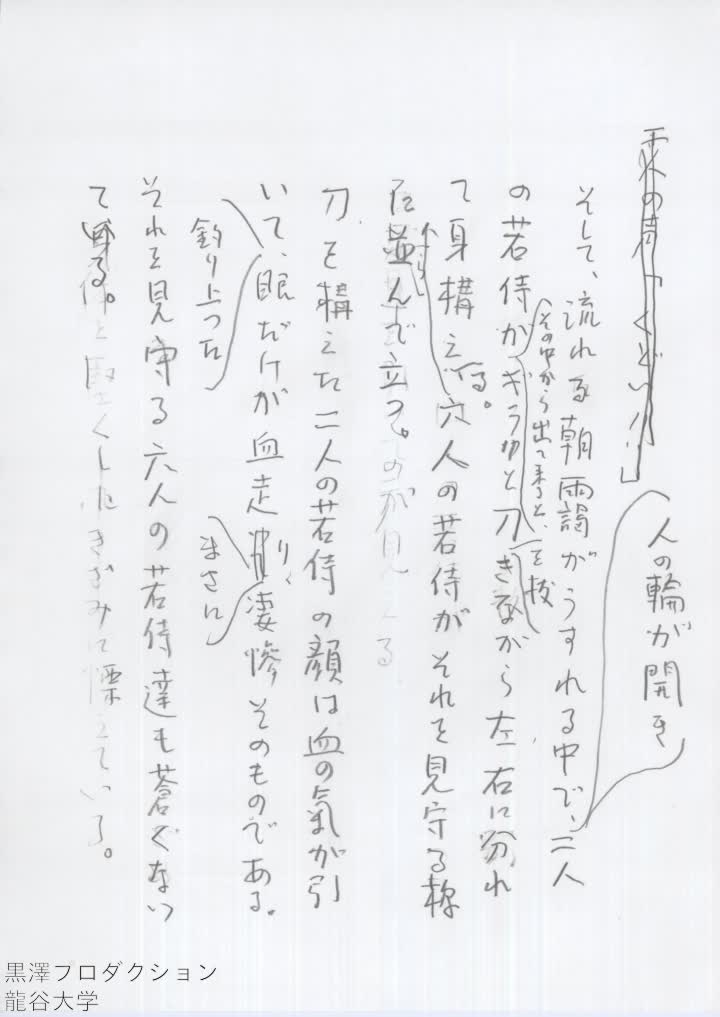 人の輪が開き
そして、流れる朝雨靄がうすれる中で、二人
その中から出て来ると、
の若侍がギラリと刀を抜きながら左右に分れ
て身構える。六人の若侍がそれを見守る様
に並んで立つ。
刀を構えた二人の若侍の顔は血の気が引
いて、眼だけが血走り、凄惨そのものである。
釣り上った
まさに
それを見守る六人の若侍達も蒼ざない
て
る。
ている。
黒澤プロダクション
龍谷大学